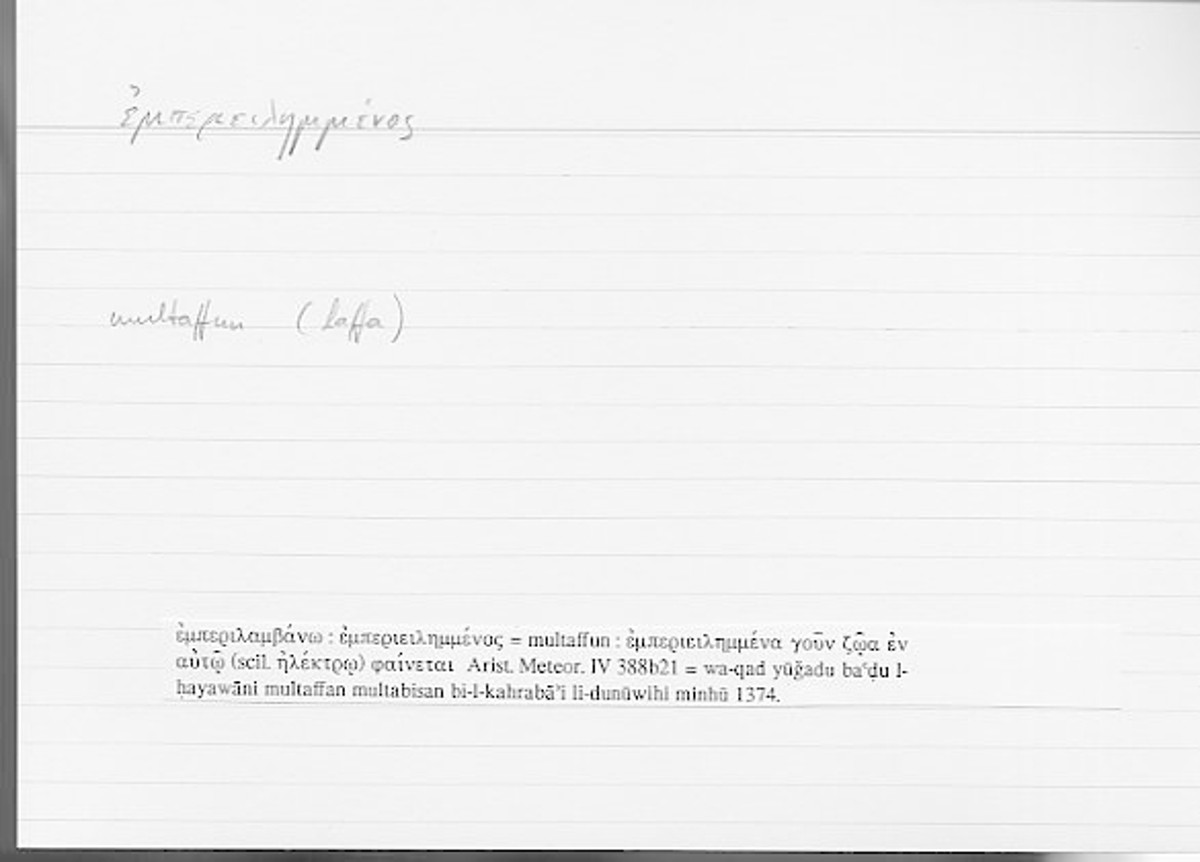 ἐμπερειλημμένος
multaffun (laffa)
ἐμπεριλαμβάνω : ἐμπεριειλημμένος = multaffun : ἐμπεριειλημμένα γοῦν ζῷα ἐν
αὐτῷ (scil. ἠλέκτρῳ) φαίνεται Arist. Meteor. IV 388b21 = wa-qad yūǧadu baʿḍu l-
ḥayawāni multaffan multabisan bi-l-kahrabāʾi li-dunūwihi minhū 1374.